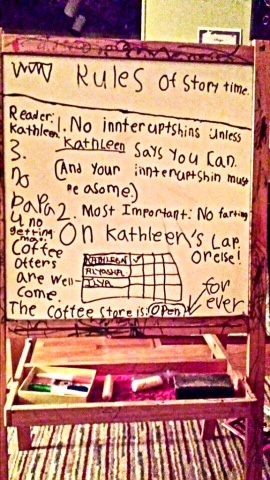 Rules of story time.
Reader:
Kathleen
1. No innteruptshins unless
Kathleen says you can.
(And your innteruptshin must
be asome.)
2. Most Important: No farting
On Kathleen's Lap
Or else!
3.
no
papa
4 no
getting
mad
Coffee
offers
are well-
come.
KATHLEEN ✓
ALYOSHA
ILYA
The coffee store is: Open
for
ever